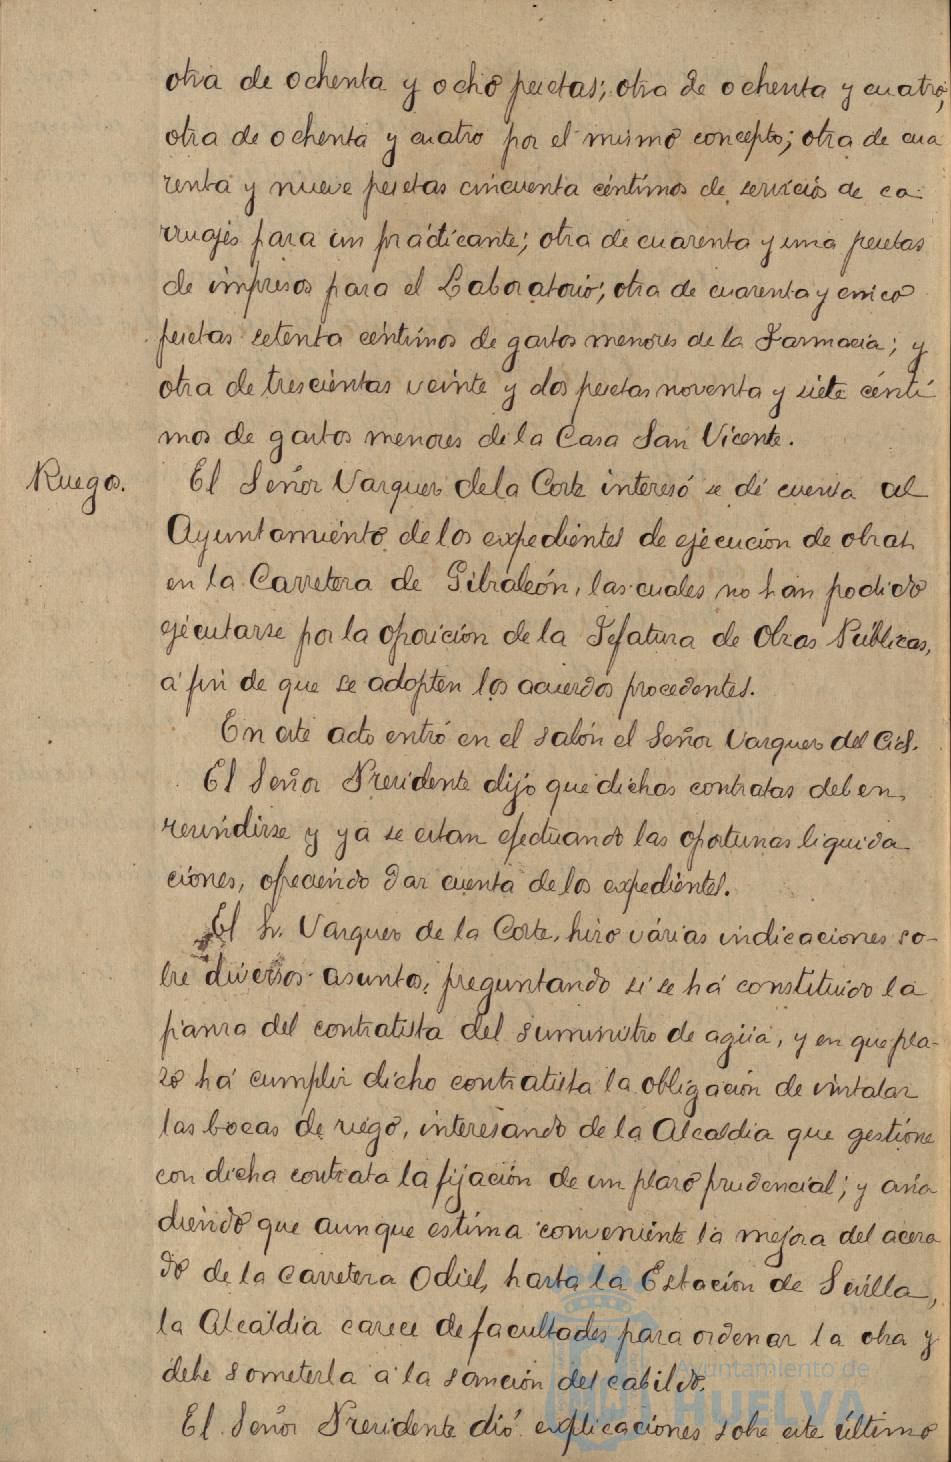 otra de ochenta y ocho pesetas; otra de ochenta y cuatro;
otra de ochenta y cuatro por el mismo concepto; otra de cua
renta y nueve pesetas cincuenta céntimos de servicios de ca
rruajes para un practicante; otra de cuarenta y una pesetas
de impresos para el Laboratorio; otra de cuarenta y cinco
pesetas setenta céntimos de gastos menores de la Farmacia; y
otra de trescientas veinte y dos pesetas noventa y siete cénti
mos de gastos menores de la Casa San Vicente.
Ruegos. El Señor Vazquez de la Corte interesó se dé cuenta al
Ayuntamiento de los expedientes de ejecucion de obras
en la Carretera de Gibraleón, las cuales no han podido
ejecutarse por la oposición de la Jefatura de Obras Públicas,
a fin de que se adopten los acuerdos procedentes.
En este acto entró en el salón el Señor Vazquez del Cid.
El Señor Presidente dijo que dichas contratas deben
rescindirse y ya se estan efectuando las oportunas liquida
ciones, ofreciendo dar cuenta de los expedientes.
El Sr. Vazquez de la Corte, hizo várias indicaciones so-
bre diversos asuntos, preguntando si se há constituido la
fianza del contratista del suministro de agua, y en que pla-
zo há cumplir dicho contratista la obligación de instalar
las bocas de riego, interesando de la Alcaldia que gestione
con dicha contrata la fijación de un plazo prudencial; y aña
diendo que aunque estima conveniente la mejora del acera
do de la carretera Odiel, hasta la Estación de Sevilla,
la Alcaldia carece de facultades para ordenar la obra y
debe someterla a la sanción del cabildo.
El Señor Presidente dió explicaciones sobre este último
Ayuntamiento de
HUELVA